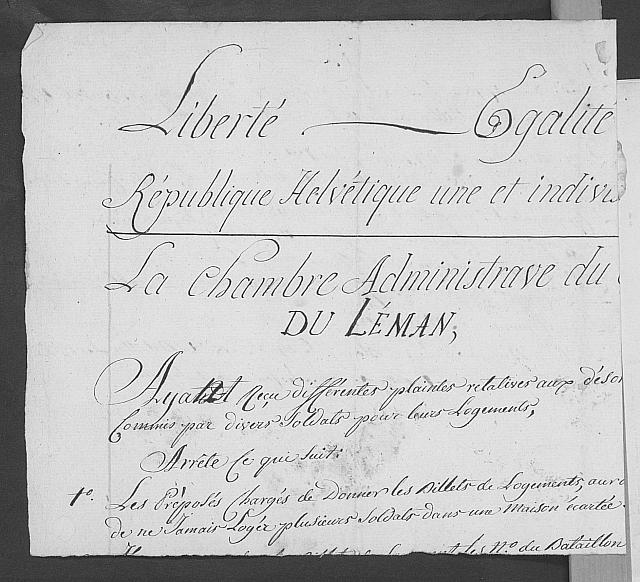 Liberté — Egalité
République Helvétique une et indivis
La Chambre Administrave du
DU LÉMAN,
Ayant Reçu différentes plaintes relatives aux déso
Commis par divers Soldats pour leurs Logements,
Arrête Ce qui suit:
1º. Les Préposés Chargés de Donner les Billets de Logements, auro
de ne Jamais Loger plusieurs Soldats dans une Maison écartée
les Nº. du Bataillon